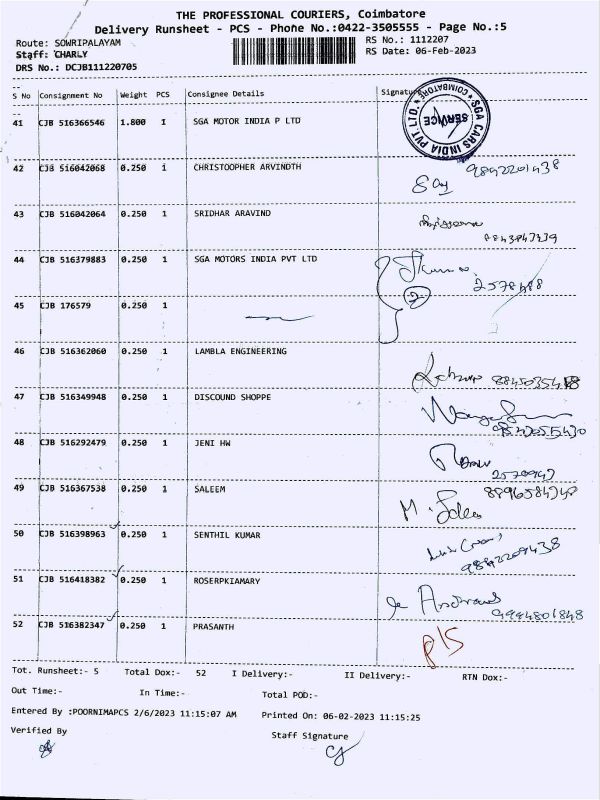 THE PROFESSIONAL COURIERS, Coimbatore
Delivery Runsheet - PCS - Phone No.:0422-3505555 - Page No.:5
Route: SOWRIPALAYAM RS No.: 1112207
Staff: CHARLY RS Date: 06-Feb-2023
DRS No.: DCJB111220705
S No Consignment No Weight PCS Consignee Details Signature
SGA CARS INDIA PVT. LTD. * COIMBATORE * SERVICE
41 CJB 516366546 1.800 1 SGA MOTOR INDIA P LTD
42 CJB 516042068 0.250 1 CHRISTOOPHER ARVINDTH 9842201438
43 CJB 516042064 0.250 1 SRIDHAR ARAVIND
44 CJB 516379883 0.250 1 SGA MOTORS INDIA PVT LTD
2
45 CJB 176579 0.250 1
46 CJB 516362060 0.250 1 LAMBLA ENGINEERING
47 CJB 516349948 0.250 1 DISCOUND SHOPPE
48 CJB 516292479 0.250 1 JENI HW
49 CJB 516367538 0.250 1 SALEEM
50 CJB 516398963 0.250 1 SENTHIL KUMAR
51 CJB 516418382 0.250 1 ROSERPKIAMARY
9994801848
52 CJB 516382347 0.250 1 PRASANTH
Tot. Runsheet:- 5 Total Dox:- 52 I Delivery:- II Delivery:- RTN Dox:-
Out Time:- In Time:- Total POD:-
Entered By :POORNIMAPCS 2/6/2023 11:15:07 AM Printed On: 06-02-2023 11:15:25
Verified By Staff Signature